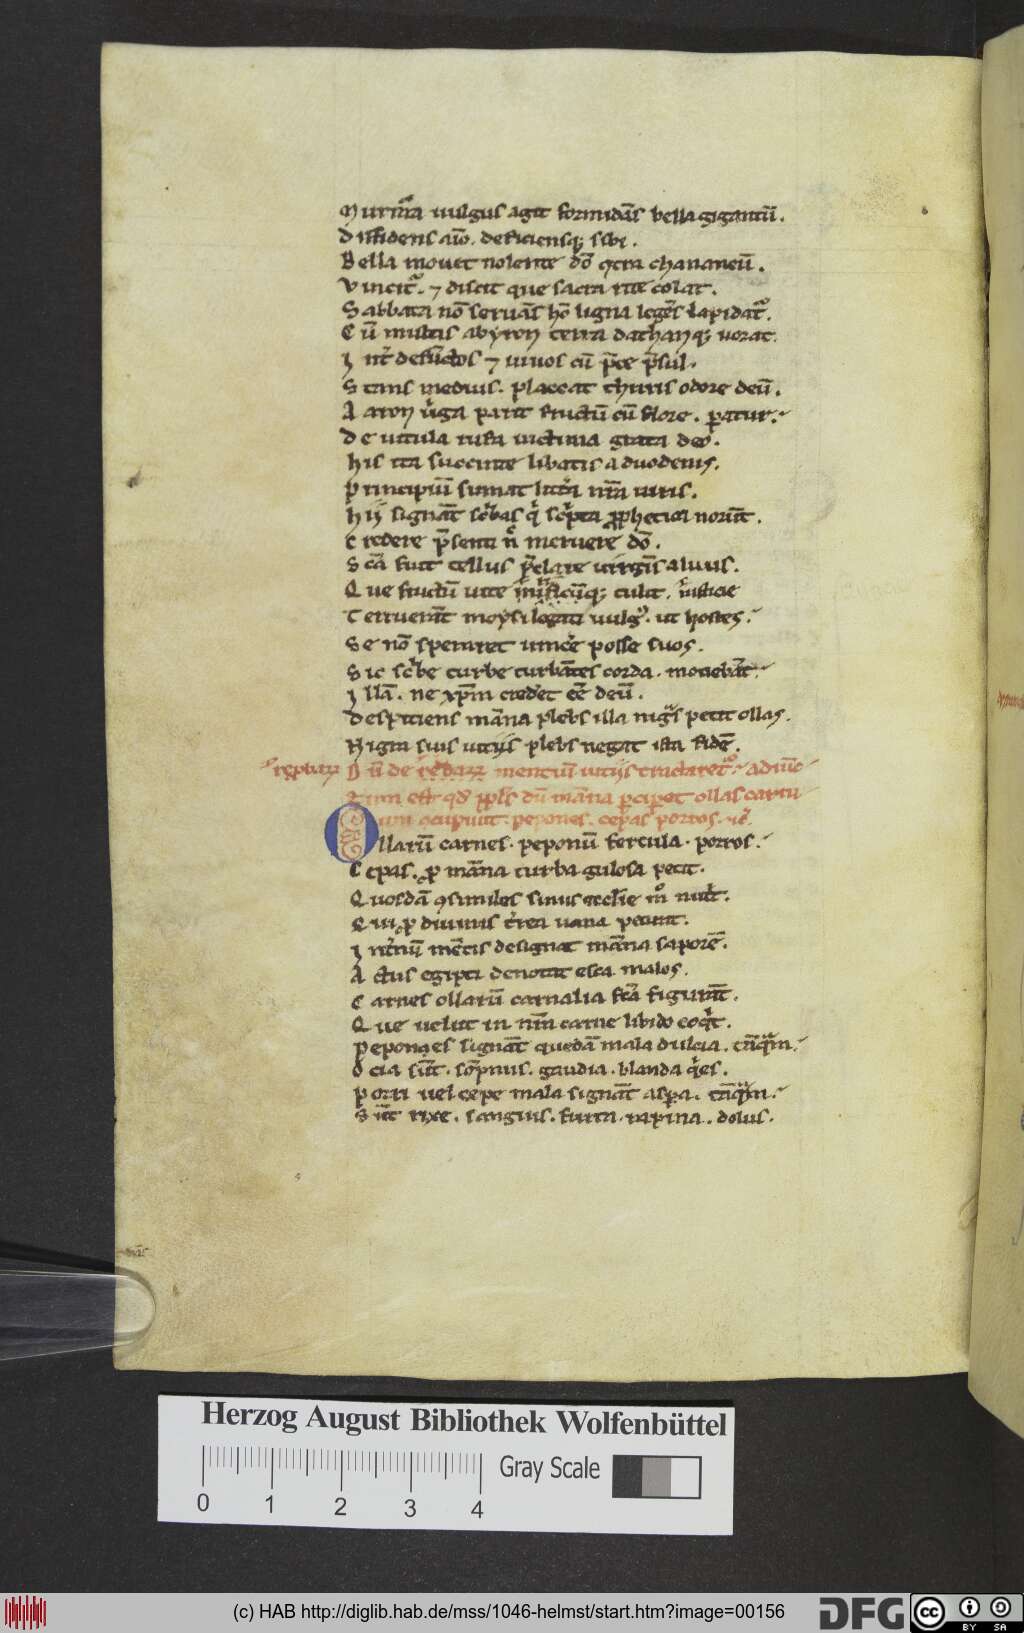 Murm̄a uulgus agit formidās bella gigantū.
Diffidens aīo. deficiensq; sibi.
Bella mouet nolente dō ꝯtra chananeū.
Vincit᷑. ⁊ discit que sacra rite colat.
Sabbata nō seruās hō ligna legēs lapidat᷑.
Cū multis abyron terra dathanq; uorat.
Int̄ defūctos ⁊ uiuos cū p̄ce p̄sul.
Stans medius. placeat thuris odore deū.
Aaron ūga parit fructū cū flore. ꝑatur.
De uitula rufa uictima grata deo.
His ita succinte libatis a duodenis.
Principiū sumat litt̄a nr̄a uiris.
Hii signāt sc̄bas q̄ sc̄pta ꝓphetica norūt.
Credere p̄senti n̄ meruere dō.
Scā fuit tellus p̄clare uirgīs aluus.
Que fructū uite tulit. mīficie
Terruerāt moysi legati uulgꝰ. ut hostes.
Se nō speraret uincē posse suos.
Sic sc̄be turbe turbātes corda. mouebāt.
Illā. ne xp̄m cred̄et eē deū.
Despiciens māna plebs illa nig̅s petit ollas.
Nigra suis uitiis plebs negat ista fidē.
mentiū uitiis
est qd̄ ppls dū māna ꝑcipet ollas carniu
um pepones. cepas porros.
Ollarū carnes. peponū fercula. porros.
Cepas. ꝓ māna turba gulosa petit.
Quosdā ꝯsimiles sinus eccl̄ie m̊ nut̄t.
Qui ꝓ diuinis t̄rea uana petunt.
Int̄nū mētis designat māna saporē.
Actus egipti denotat esca malos.
Carnes ollarū carnalia fc̄a figurāt.
Que uelut in nr̄m carne libido coq̄t.
Pepones signāt quedā mala dulcia. tāꝗ̄m.
Ocia sūt. sōpnus. gaudia. blanda q̄es.
Porri uel cepe mala signāt aspa. tāꝗ̄m.
Sūt rixe. sanguis. furta. rapina. dolus.
Herzog August Bibliothek Wolfenbüttel
0 1 2 3 4
Gray Scale
(c) HAB http://diglib.hab.de/mss/1046-helmst/start.htm?image=00156
DFG
cc BY SA